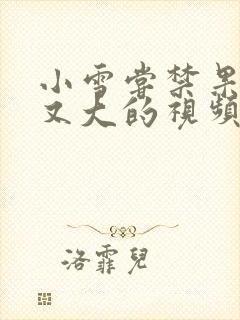 小雪嘗禁果
又大的視頻
洛霏兒